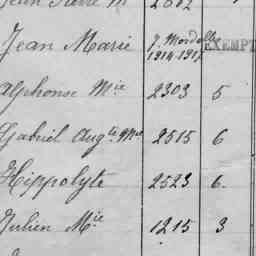 Jean Pierre M
Jean Marie J. Mordelles EXEMPT
1914-1917
Alphonse Mie 2303 5
Gabriel Augte Mie 2515 6
Hippolyte 2523 6.
Julien Mie 1215 3